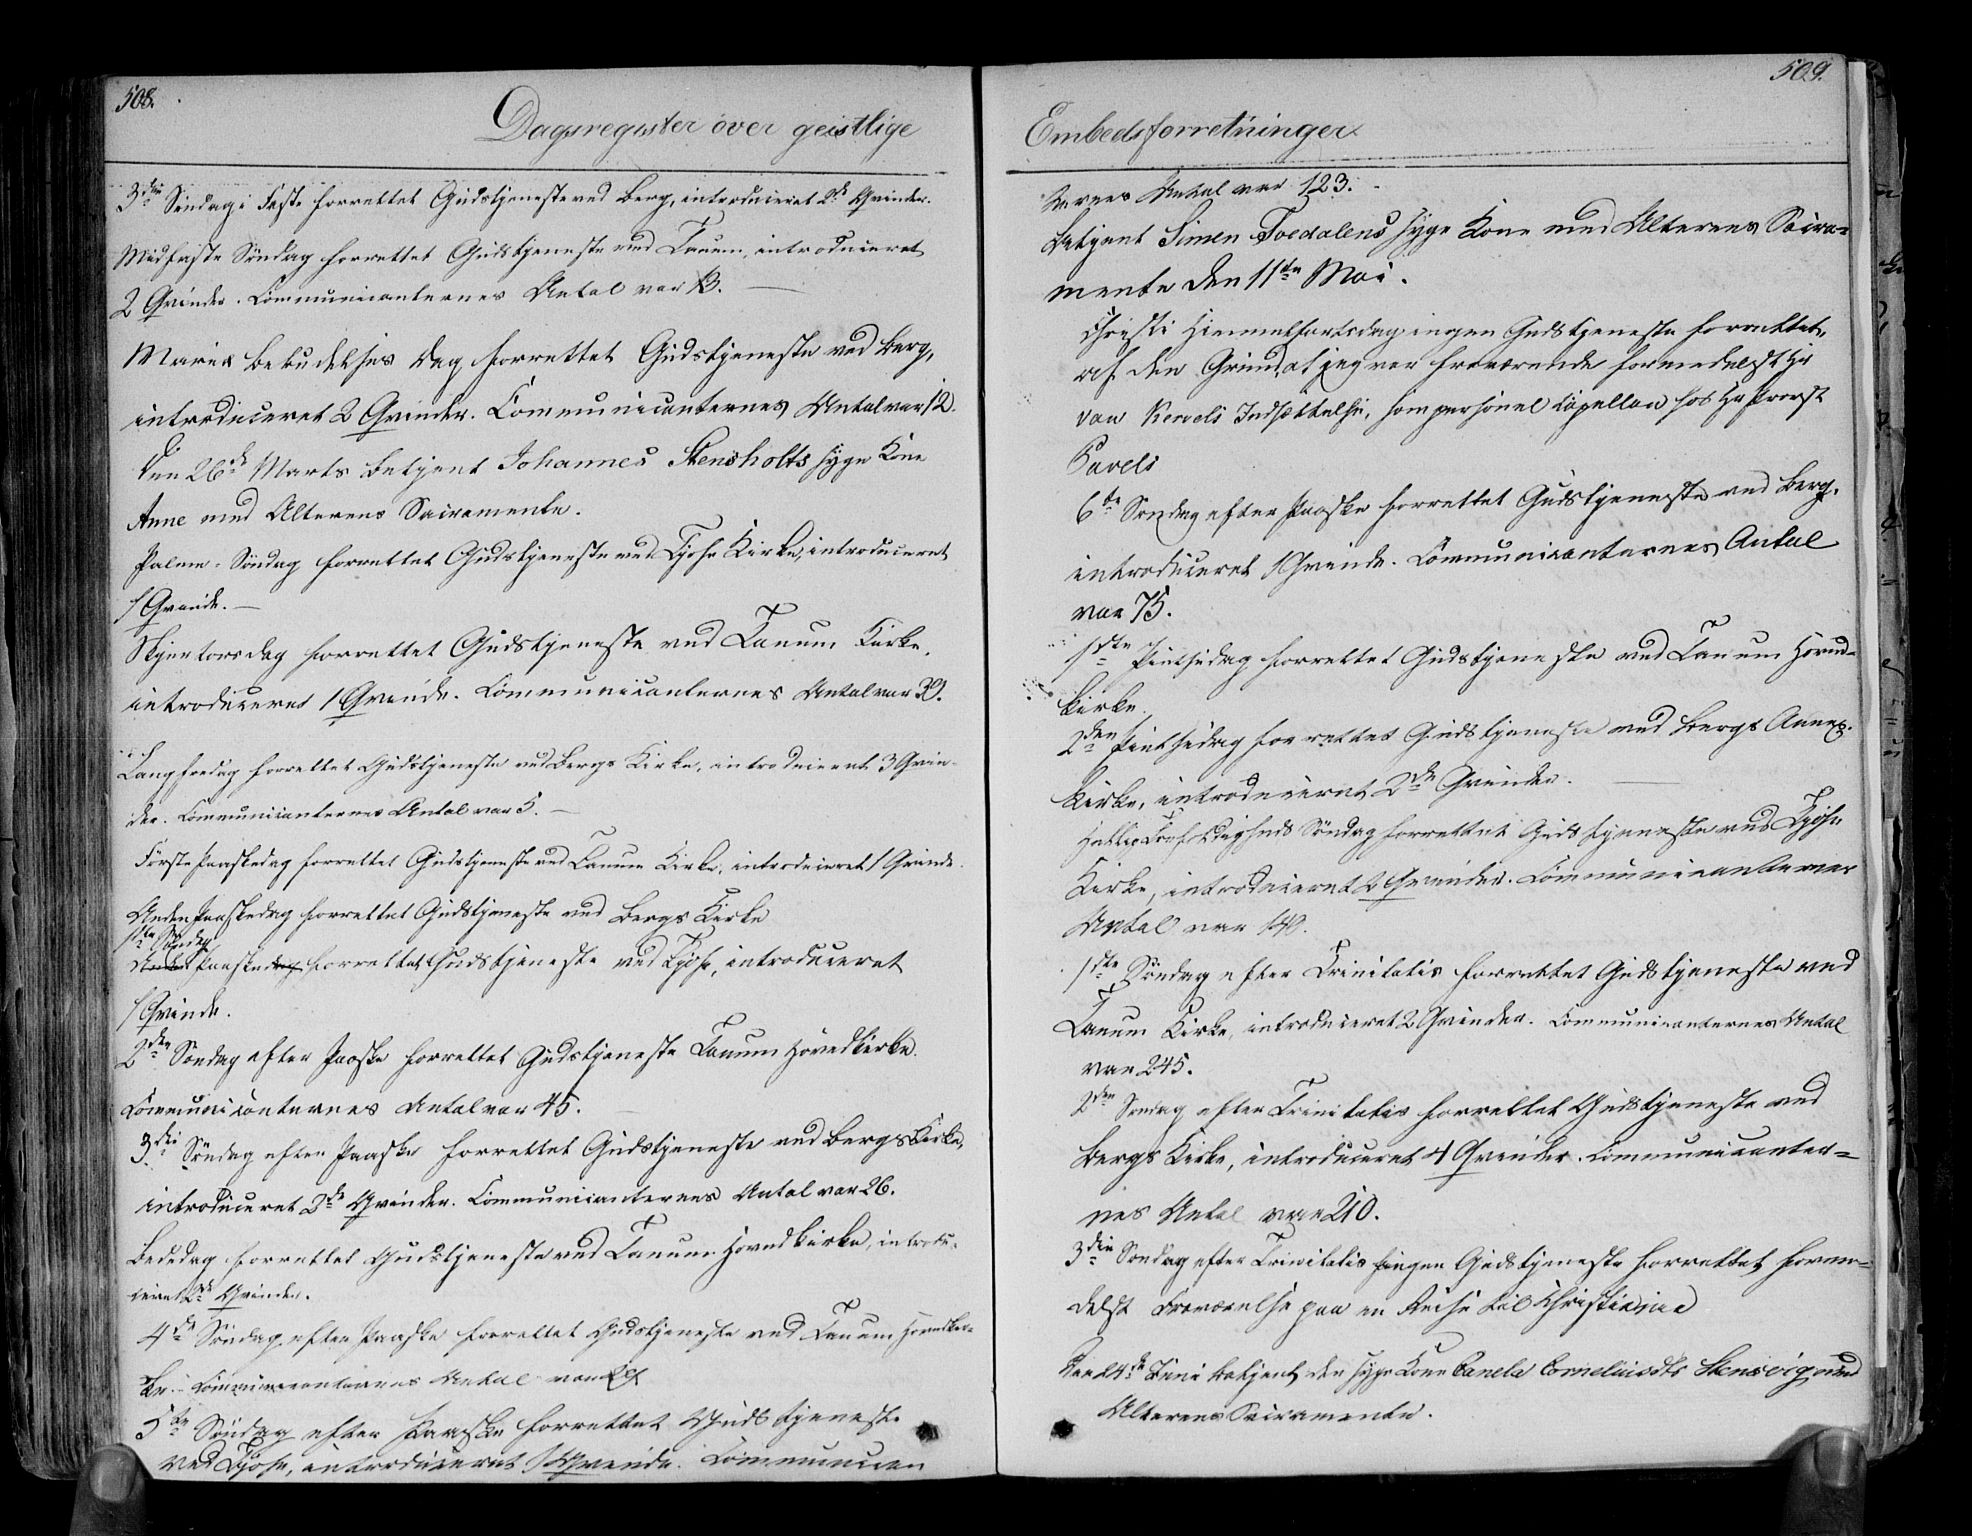 508.
Dagsregister over geistlige
3die Søndag i Faste forrettet Gudstjeneste ved Berg, introduceret 2de Qvinder.
Midfaste Søndag forrettet Gudstjeneste ved Tanum, introduceret
2 Qvinder. Communicanternes Antal var 13.
Mariæ Bebudelses Dag forrettet Gudstjeneste ved Berg,
introduceret 2 Qvinder. Communicanternes Antal var 12.
Den 26de Marts betjent Johannes Stensholts syge Kone
Anne med Alterens Sacramente.
Palme-Søndag forrettet Gudstjeneste ved Kjose Kirke, introduceret
1 Qvinde.
Skjertorsdag forrettet Gudstjeneste ved Tanum Kirke,
introduceret 1 Qvinde. Communicanternes Antal var 39.
Langfredag forrettet Gudstjeneste ved Bergs Kirke, introduceret 3 Qvin-
der. Communicanternes Antal var 5.
Første Paaskedag forrettet Gudstjeneste ved Tanum Kirke, introduceret 1 Qvinde.
Anden Paaskedag forrettet Gudstjeneste ved Bergs Kirke
1ste Søndag
Paaske forrettet Gudstjeneste ved Kjose, introduceret
1 Qvinde.
2den Søndag efter Paaske forrettet Gudstjeneste Tanum Hovedkirke.
Communicanternes Antal var 45.
3die Søndag efter Paaske forrettet Gudstjeneste ved Bergs Kirke,
introduceret 2de Qvinder. Communicanternes Antal var 26.
Bededag forrettet Gudstjeneste ved Tanum Hovedkirke, introdu-
ceret 2de Qvinder.
4de Søndag efter Paaske forrettet Gudstjeneste ved Tanum Hovedkir-
ke. Communicanternes Antal var
5te Søndag efter Paaske forrettet Gudstjeneste
ved Kjose, introduceret 1 Qvinde. Communican
509.
Embedsforretninger
ternes Antal var 123.
Betjent Simen Foedalens syge Kone med Alterens Sacra-
mente den 11te Mai.
Christi Himmelfartsdag ingen Gudstjeneste forrettet,
af den Grund, at jeg var fraværende formedelst Hr
van Kervels Indsættelse, som personel Capellan hos Hr Provst
Pavels
6te Søndag efter Paaske forrettet Gudstjeneste ved Berg,
introduceret 1 Qvinde. Communicanternes Antal
var 75.
1ste Pintsedag forrettet Gudstjeneste ved Tanum Hoved-
kirke.
2den Pintsedag forrettet Gudstjeneste ved Bergs Annex-
Kirke, introduceret 2de Qvinder.
Hellig Trefoldigheds Søndag forrettet Gudstjeneste ved Kjose
Kirke, introduceret 2 Qvinder. Communicanternes
Antal var 140.
1ste Søndag efter Trinitatis forrettet Gudstjeneste ved
Tanum Kirke, introduceret 2 Qvinder. Communicanternes Antal
var 245.
2den Søndag efter Trinitatis forrettet Gudstjeneste ved
Bergs Kirke, introduceret 4 Qvinder. Communicanter-
nes Antal var 210.
3die Søndag efter Trinitatis ingen Gudstjeneste forrettet forme-
delst Fraværelse paa en Reise til Christiania
Den 24de Juni betjent den syge Kone Canela Corneliusdts Stensvig med
Alterens Sacramente.